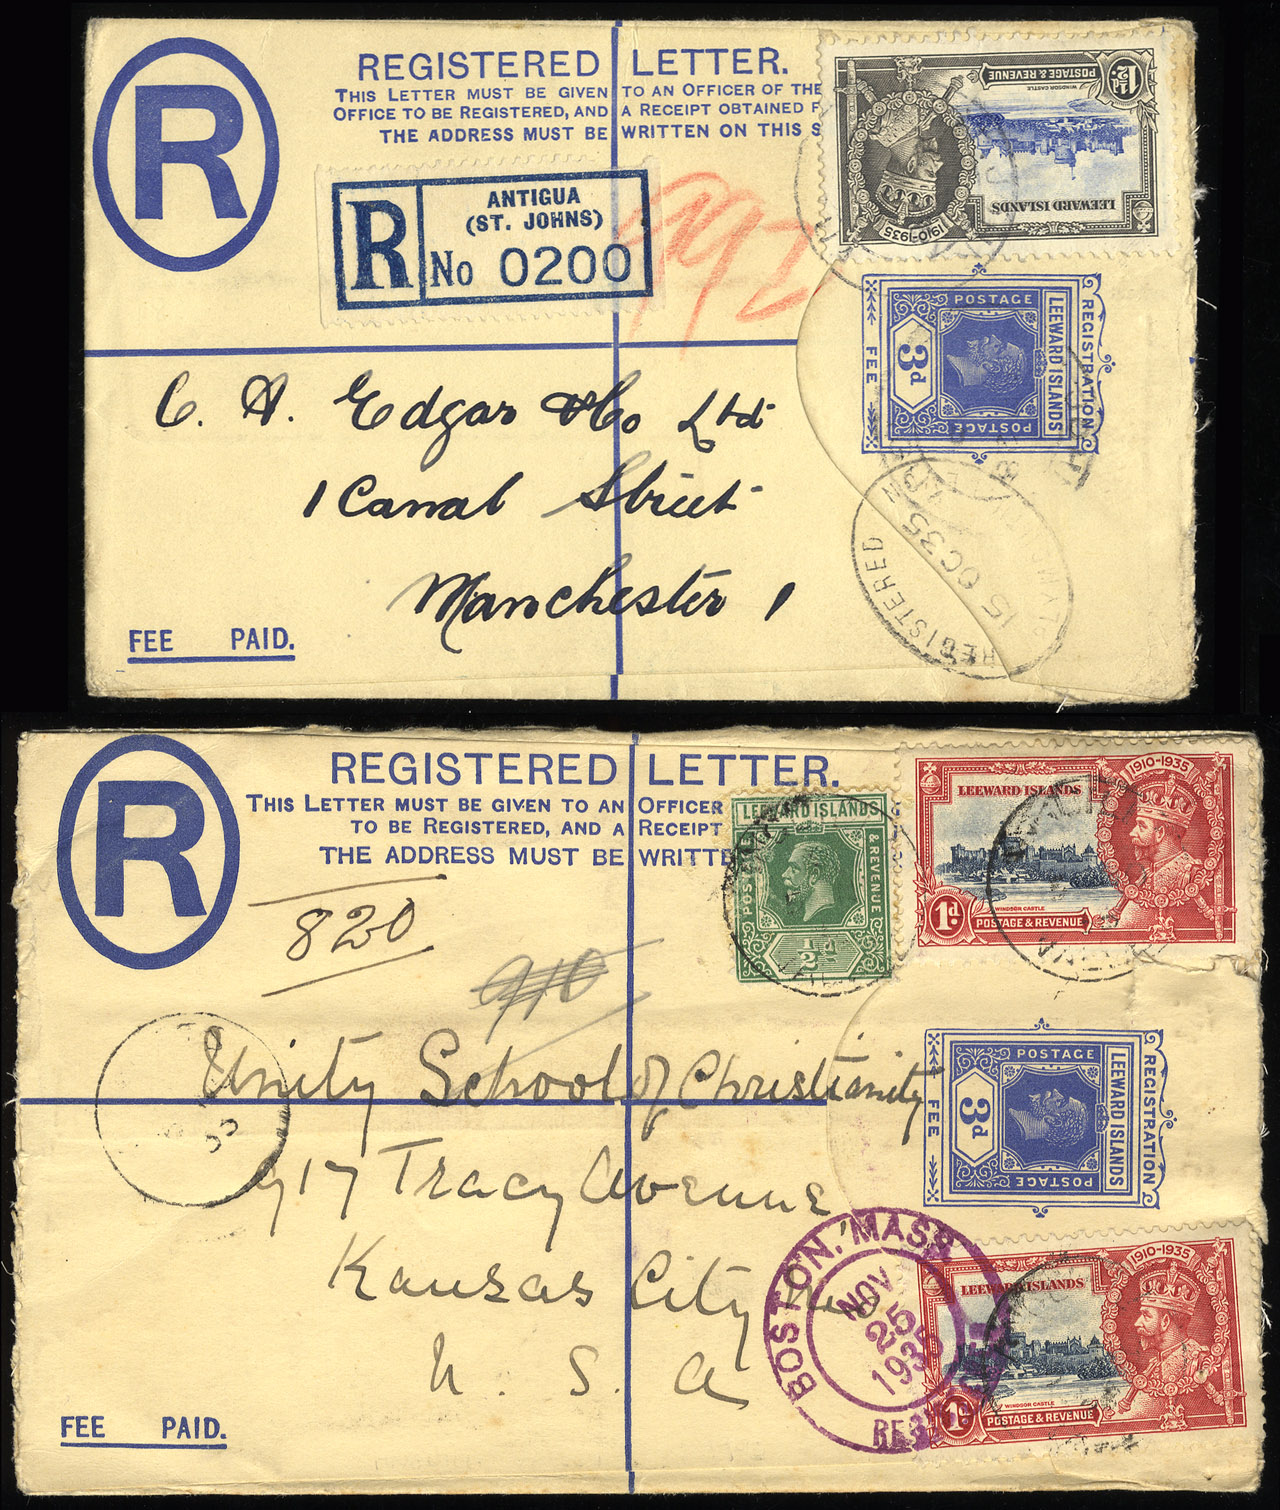 REGISTERED LETTER.
THIS LETTER MUST BE GIVEN TO AN OFFICER OF THE
OFFICE TO BE REGISTERED, AND A RECEIPT OBTAINED F
THE ADDRESS MUST BE WRITTEN ON THIS S
R
R
ANTIGUA
(ST. JOHNS)
No 0200
992
1½d
POSTAGE & REVENUE
WINDSOR CASTLE
LEEWARD ISLANDS
1910-1935
POSTAGE
REGISTRATION
LEEWARD ISLANDS
3d
FEE
POSTAGE
C. A. Edgar & Co Ltd
1 Canal Street
Manchester 1
REGISTERED
15 OC 35
FEE PAID.
REGISTERED LETTER.
THIS LETTER MUST BE GIVEN TO AN OFFICER
TO BE REGISTERED, AND A RECEIPT
THE ADDRESS MUST BE WRITTE
R
820
910
LEEWARD ISLANDS
POSTAGE
& REVENUE
½d
1910-1935
LEEWARD ISLANDS
WINDSOR CASTLE
1d
POSTAGE & REVENUE
POSTAGE
REGISTRATION
LEEWARD ISLANDS
3d
FEE
POSTAGE
Unity School of Christianity
917 Tracy Avenue
Kansas City Mo
U. S. A
35
BOSTON, MASS.
NOV
25
1935
1910-1935
LEEWARD ISLANDS
WINDSOR CASTLE
1d
POSTAGE & REVENUE
FEE PAID.